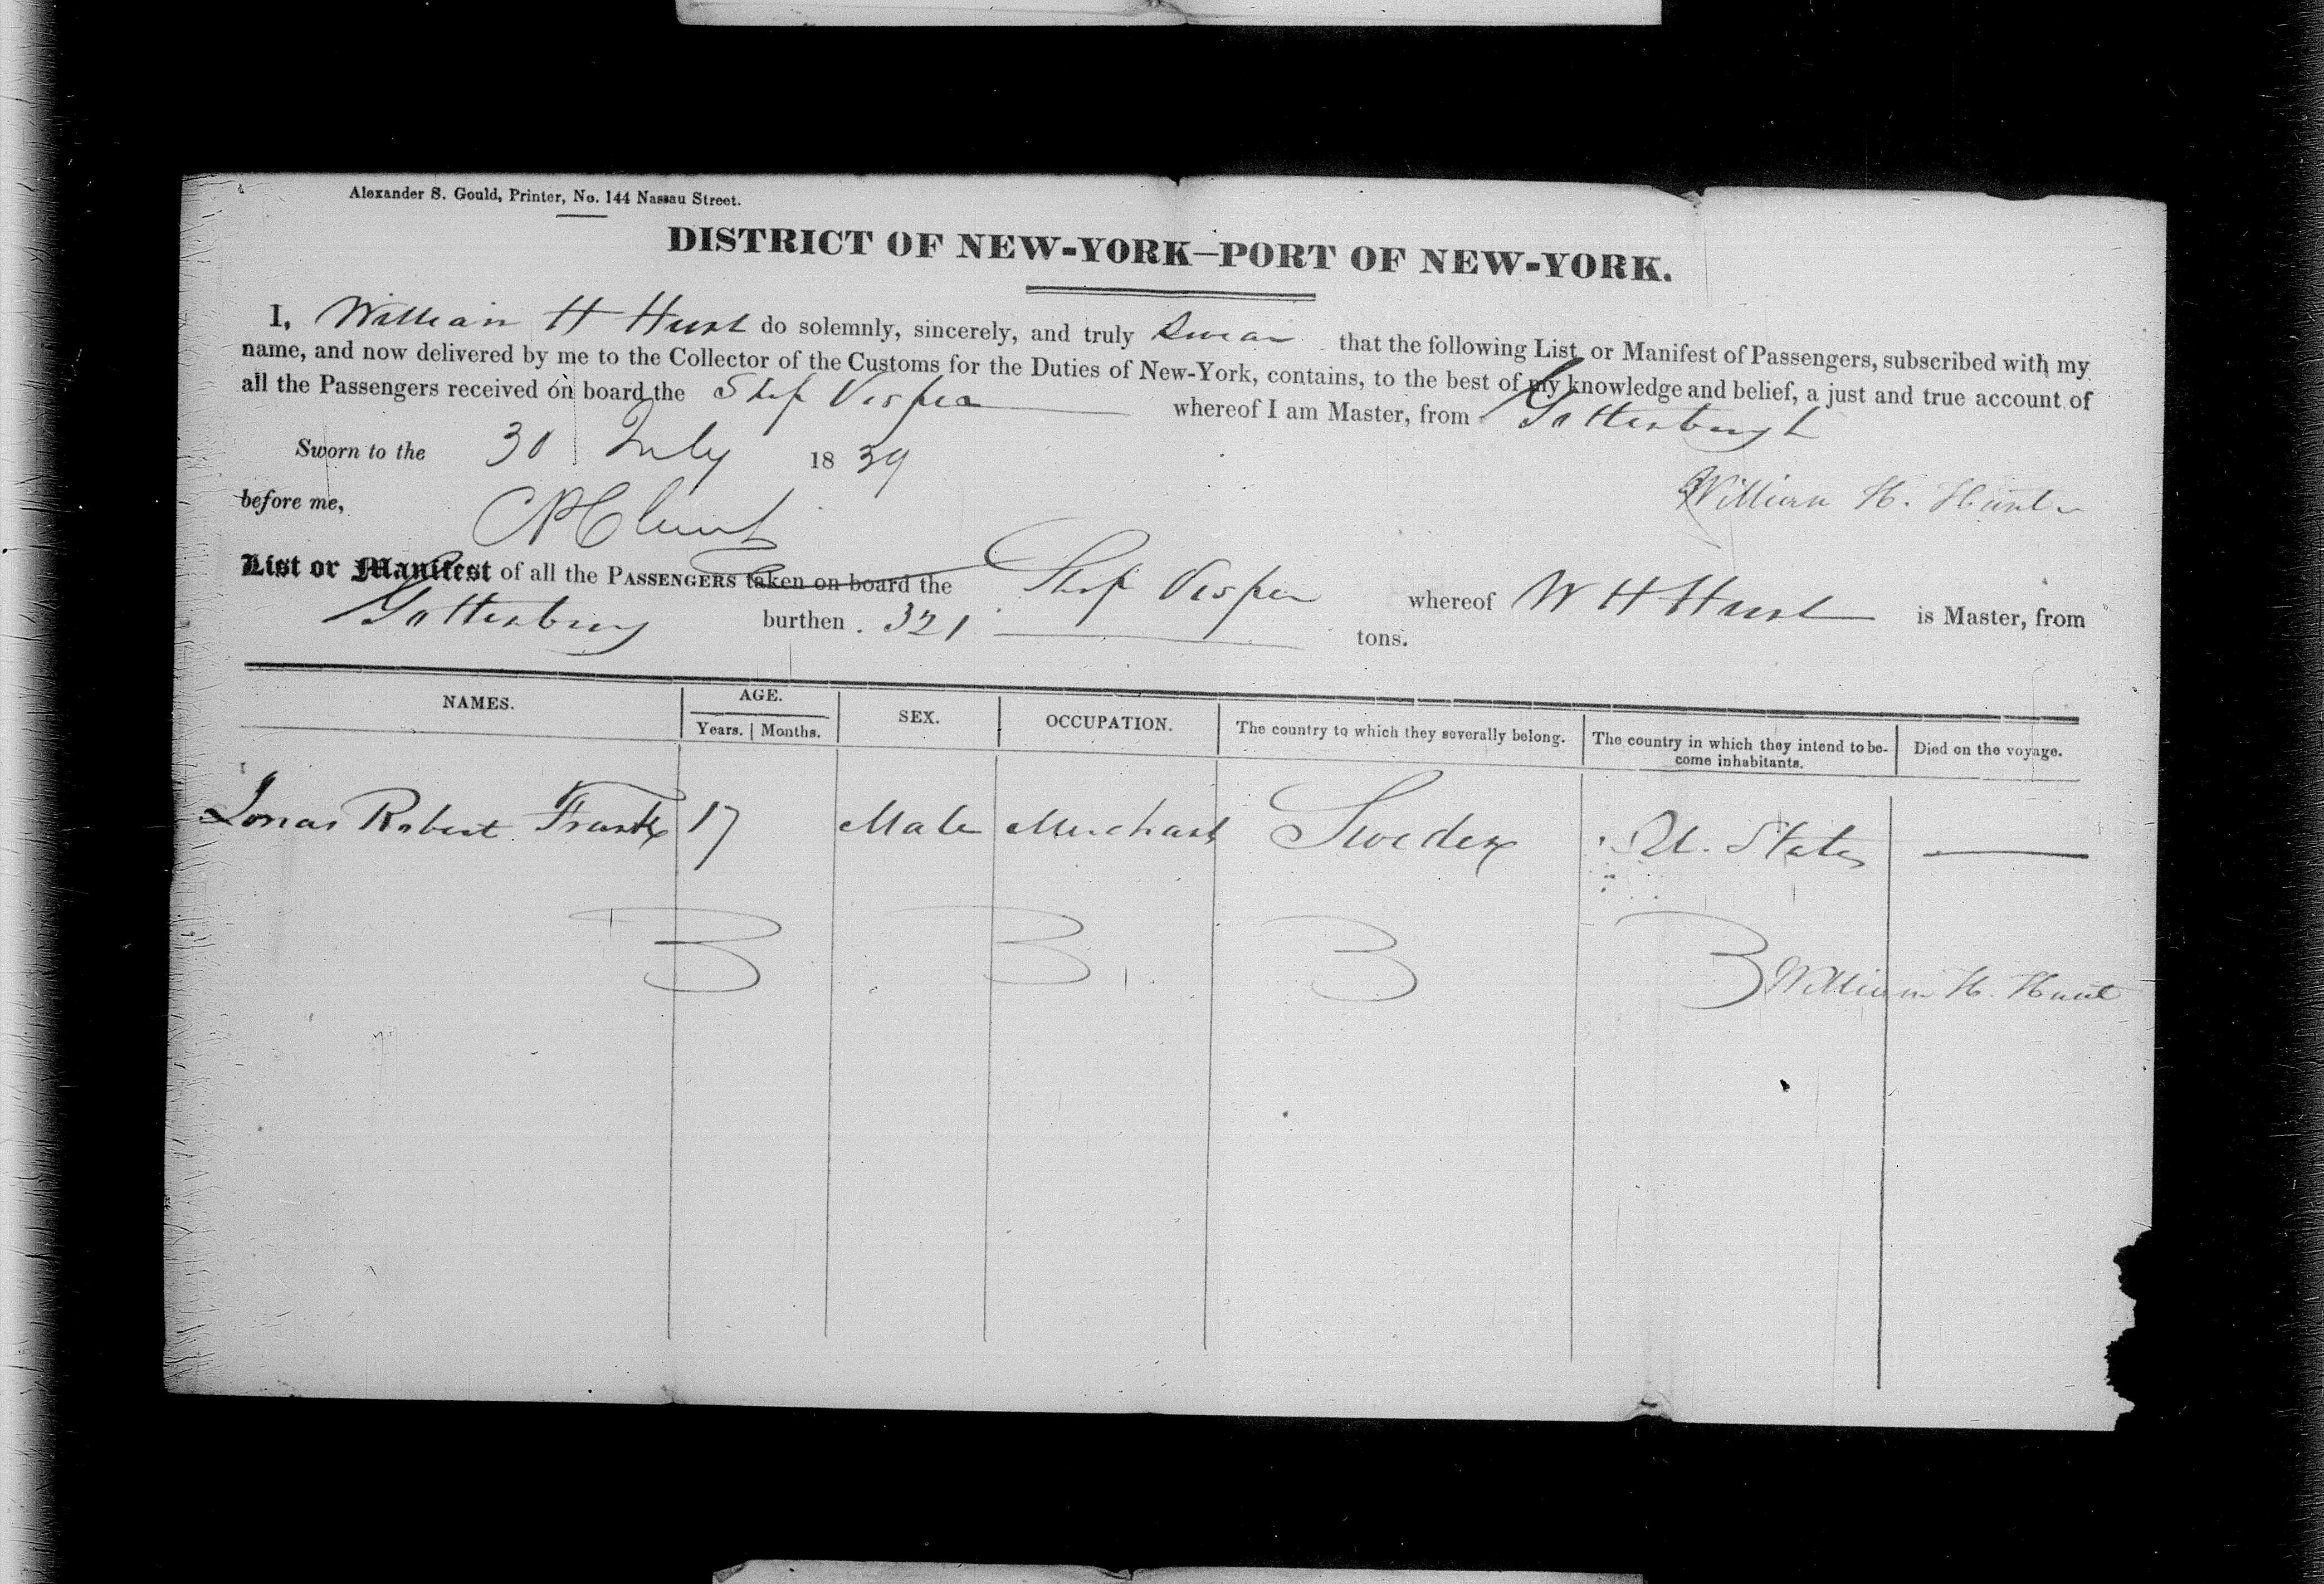 Alexander S. Gould, Printer, No. 144 Nassau Street.
DISTRICT OF NEW-YORK—PORT OF NEW-YORK.
I, William H Hunt do solemnly, sincerely, and truly Swear that the following List or Manifest of Passengers, subscribed with my
name, and now delivered by me to the Collector of the Customs for the Duties of New-York, contains, to the best of my knowledge and belief, a just and true account of
all the Passengers received on board the Ship Vesper whereof I am Master, from Gottenburgh
Sworn to the 30 July 1839
William H. Hunt
before me,
List or Manifest of all the PASSENGERS taken on board the Ship Vesper whereof W H Hunt is Master, from
Gottenburg burthen 321 tons.
NAMES. AGE. SEX. OCCUPATION. The country to which they severally belong. The country in which they intend to be- Died on the voyage.
Years. Months. come inhabitants.
Jonas Robert 17 Male Merchant Sweden U. States —
William H. Hunt